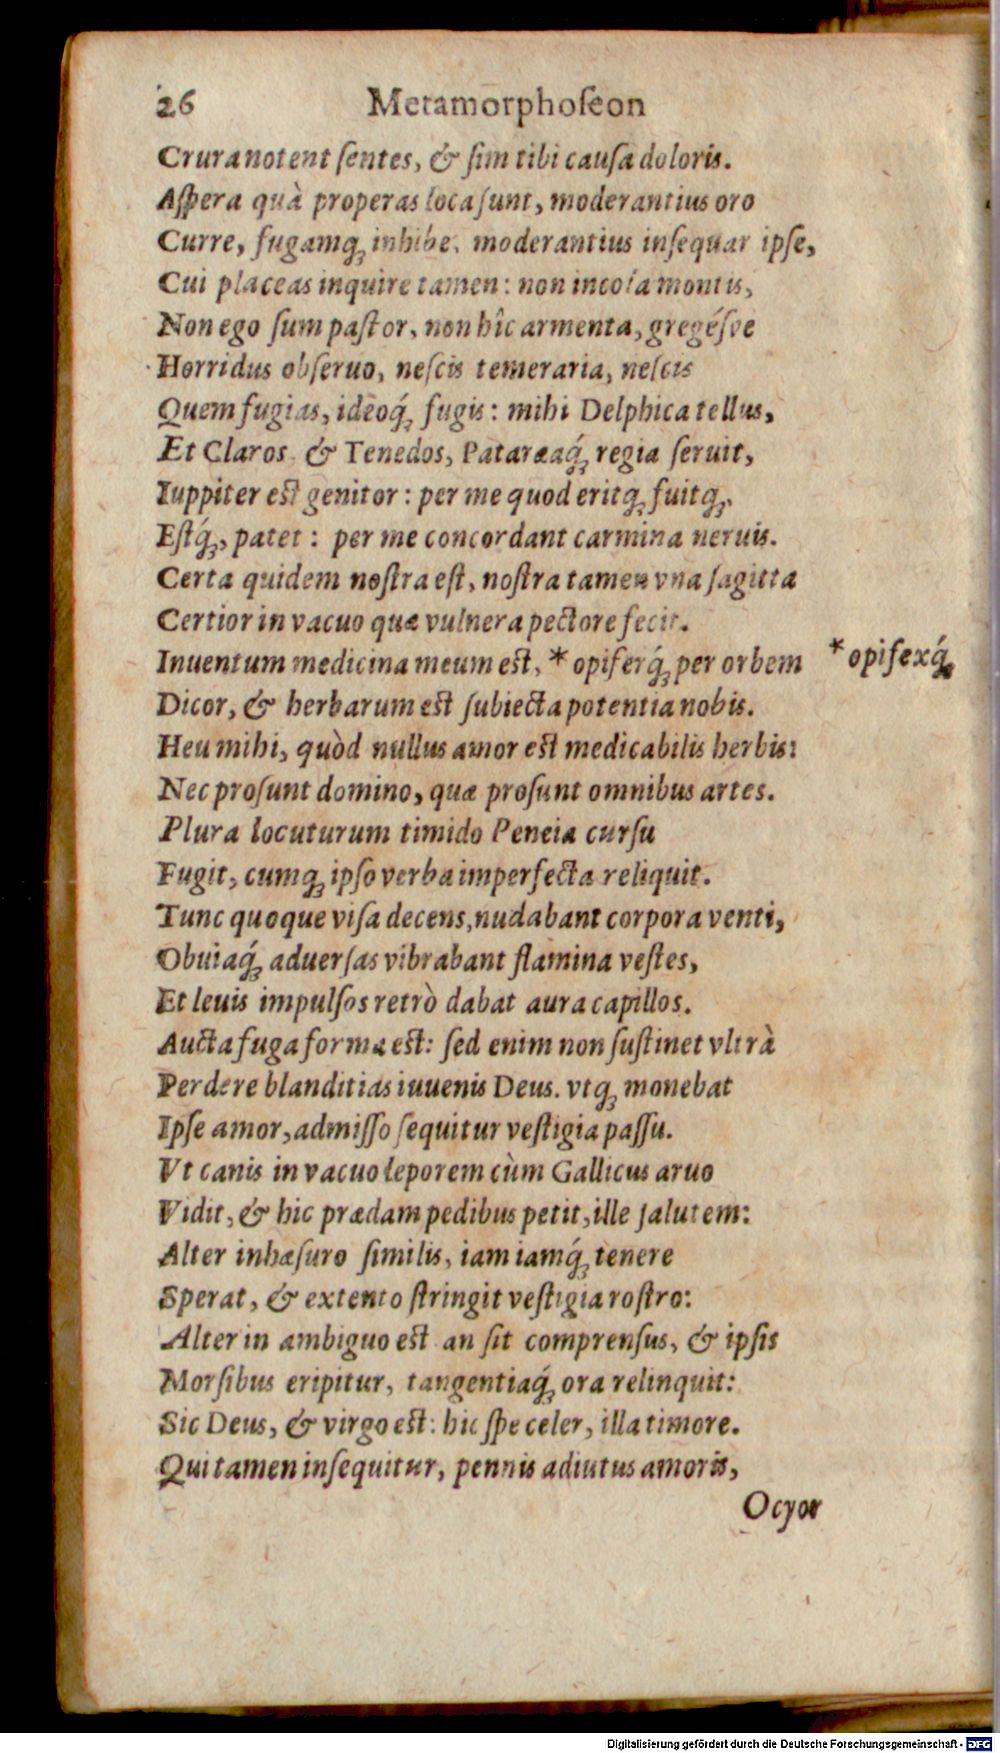 26 Metamorphoſeon
Crura notent ſentes, & ſim tibi cauſa doloris.
Aſpera quà properas loca ſunt, moderantius oro
Curre, fugamq; inhibe, moderantius inſequar ipſe,
Cui placeas inquire tamen: non incola montis,
Non ego ſum paſtor, non hîc armenta, gregéſve
Horridus obſeruo, neſcis temeraria, neſcis
Quem fugias, ideoq́; fugis: mihi Delphica tellus,
Et Claros & Tenedos, Pataræaq́; regia ſeruit,
Iuppiter est genitor: per me quod eritq; fuitq;,
Eſtq́;, patet: per me concordant carmina neruis.
Certa quidem noſtra eſt, noſtra tamen vna ſagitta
Certior in vacuo quæ vulnera pectore fecit.
Inuentum medicina meum est, * opiferq́; per orbem
* opifexq́;
Dicor, & herbarum est ſubiecta potentia nobis.
Heu mihi, quòd nullus amor est medicabilis herbis:
Nec proſunt domino, quæ proſunt omnibus artes.
Plura locuturum timido Peneia curſu
Fugit, cumq; ipſo verba imperfecta reliquit.
Tunc quoque viſa decens, nudabant corpora venti,
Obuiaq́; aduerſas vibrabant flamina veſtes,
Et leuis impulſos retrò dabat aura capillos.
Aucta fuga forma est: ſed enim non ſuſtinet vltrà
Perdere blanditias iuuenis Deus. vtq; monebat
Ipſe amor, admiſſo ſequitur veſtigia paſſu.
Vt canis in vacuo leporem cùm Gallicus aruo
Vidit, & hic prædam pedibus petit, ille ſalutem:
Alter inhæſuro ſimilis, iam iamq́; tenere
Sperat, & extento ſtringit veſtigia roſtro:
Alter in ambiguo est an ſit comprenſus, & ipſis
Morſibus eripitur, tangentiaq́; ora relinquit:
Sic Deus, & virgo est: hic ſpe celer, illa timore.
Qui tamen inſequitur, pennis adiutus amoris,
Ocyor
Digitalisierung gefördert durch die Deutsche Forschungsgemeinschaft - DFG